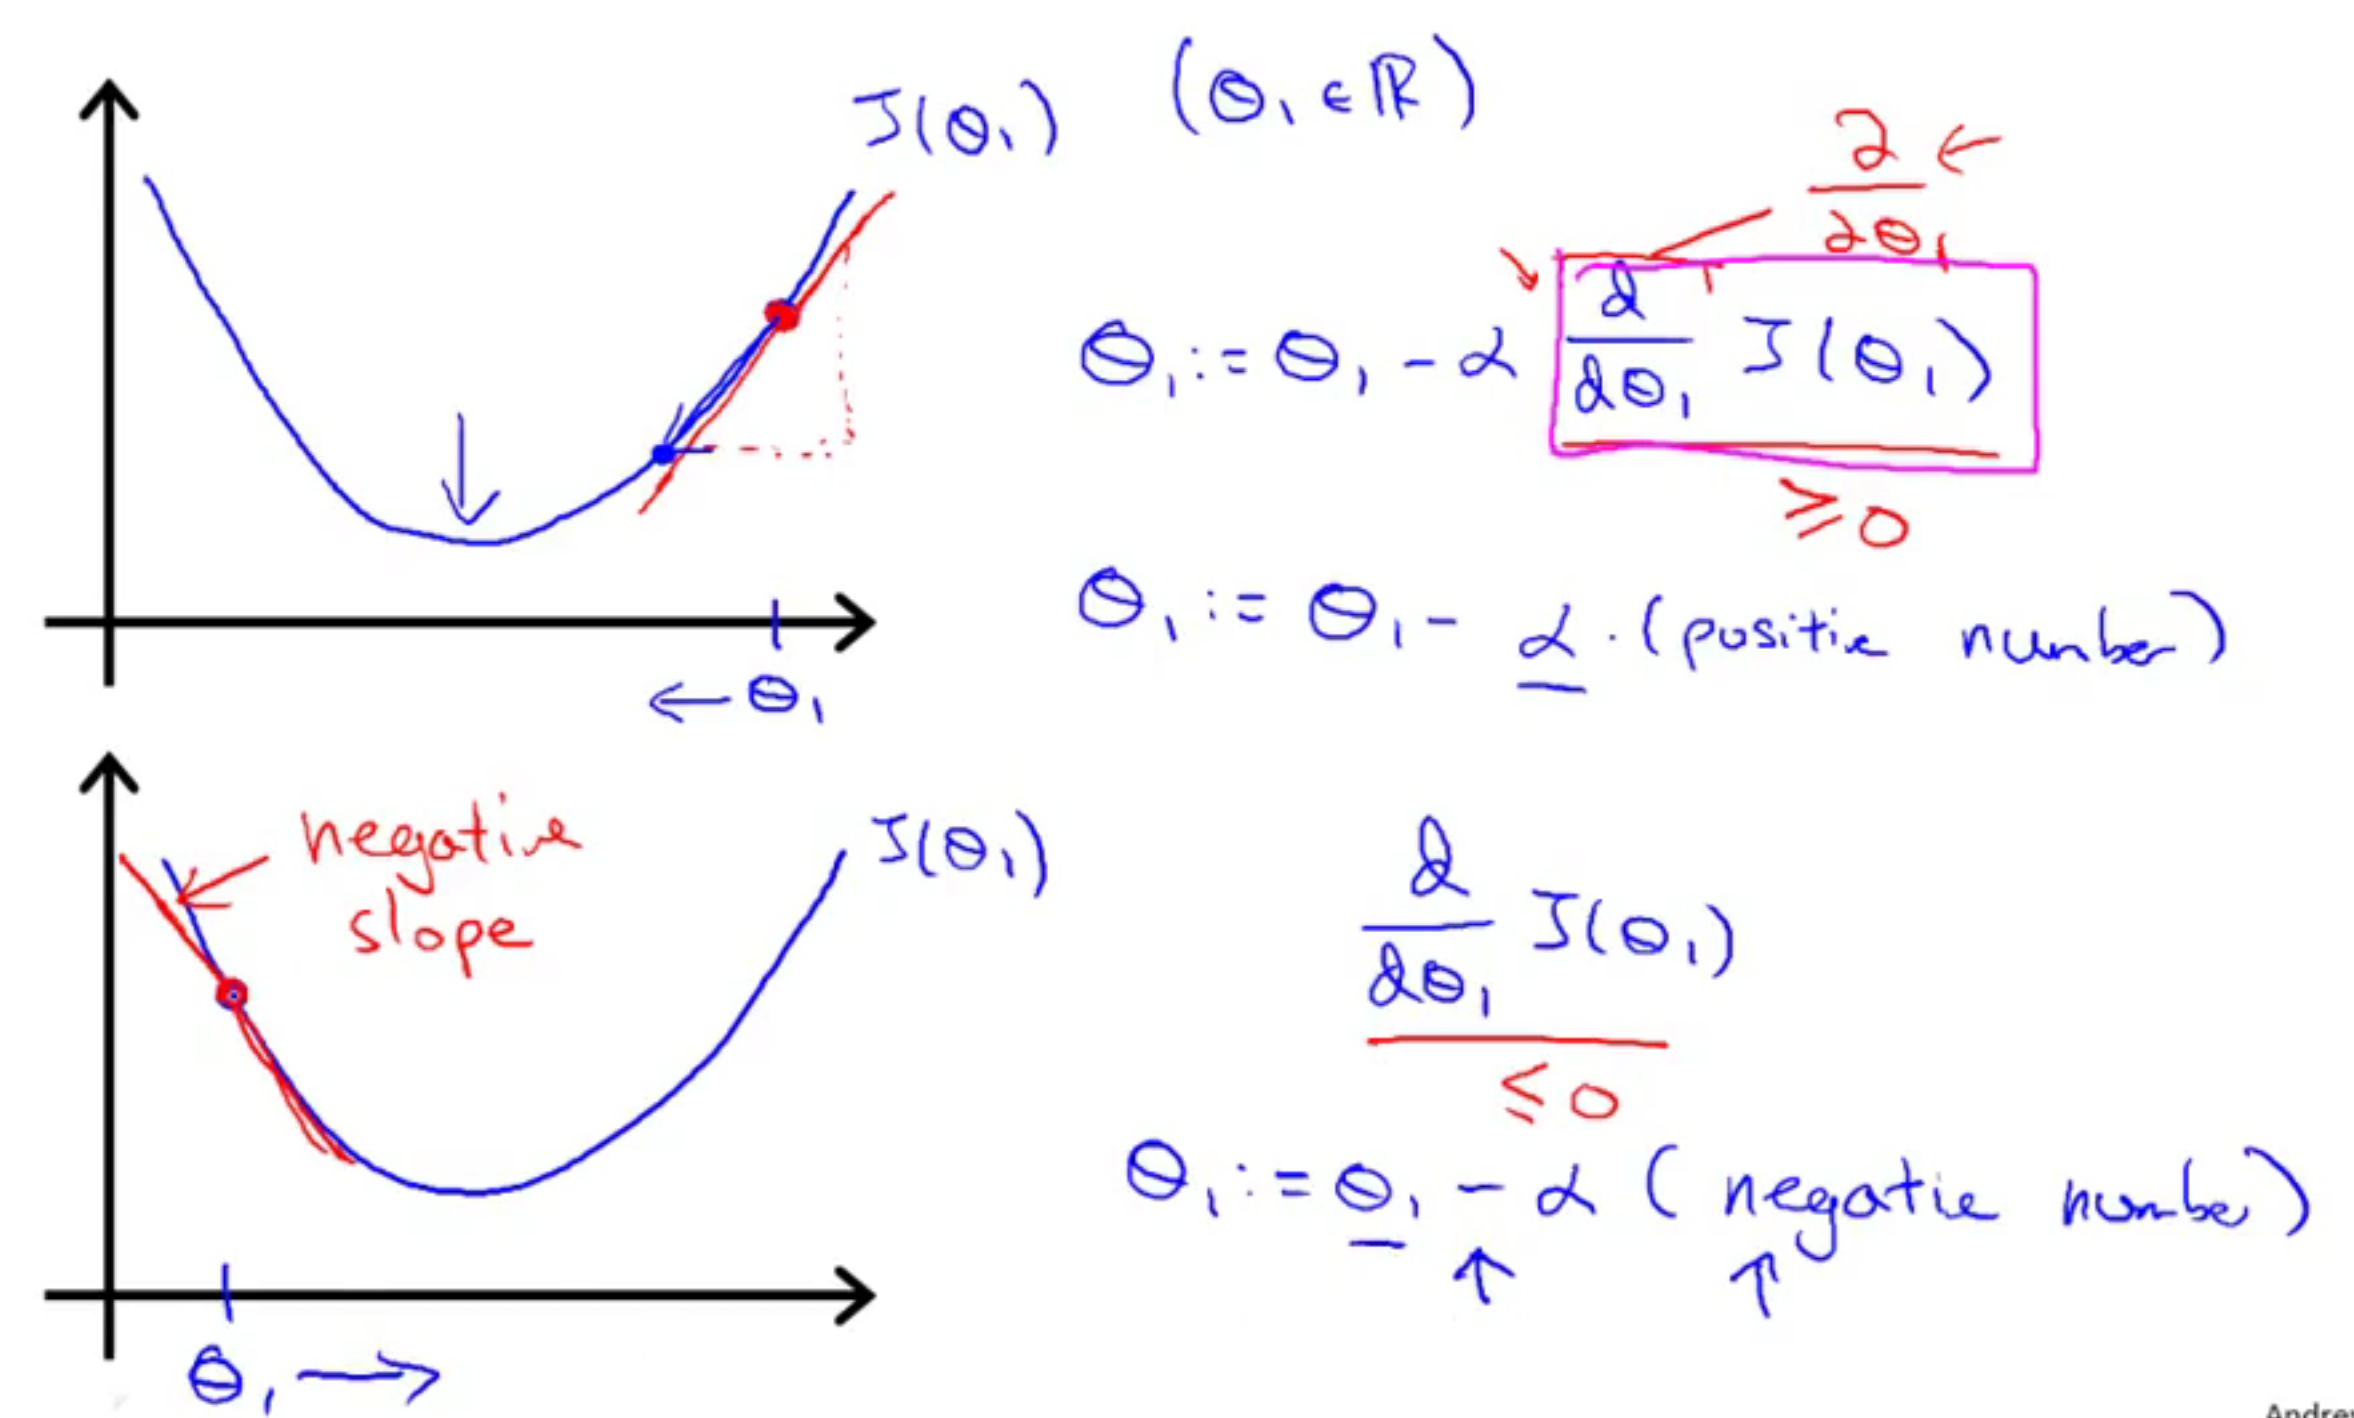 J(θ₁) (θ₁ ∈ ℝ)
∂
∂θ₁
θ₁ := θ₁ - α d/dθ₁ J(θ₁)
≥ 0
θ₁ := θ₁ - α · (positive number)
← θ₁
negative
slope
J(θ₁)
d/dθ₁ J(θ₁)
≤ 0
θ₁ := θ₁ - α (negative number)
θ₁ →